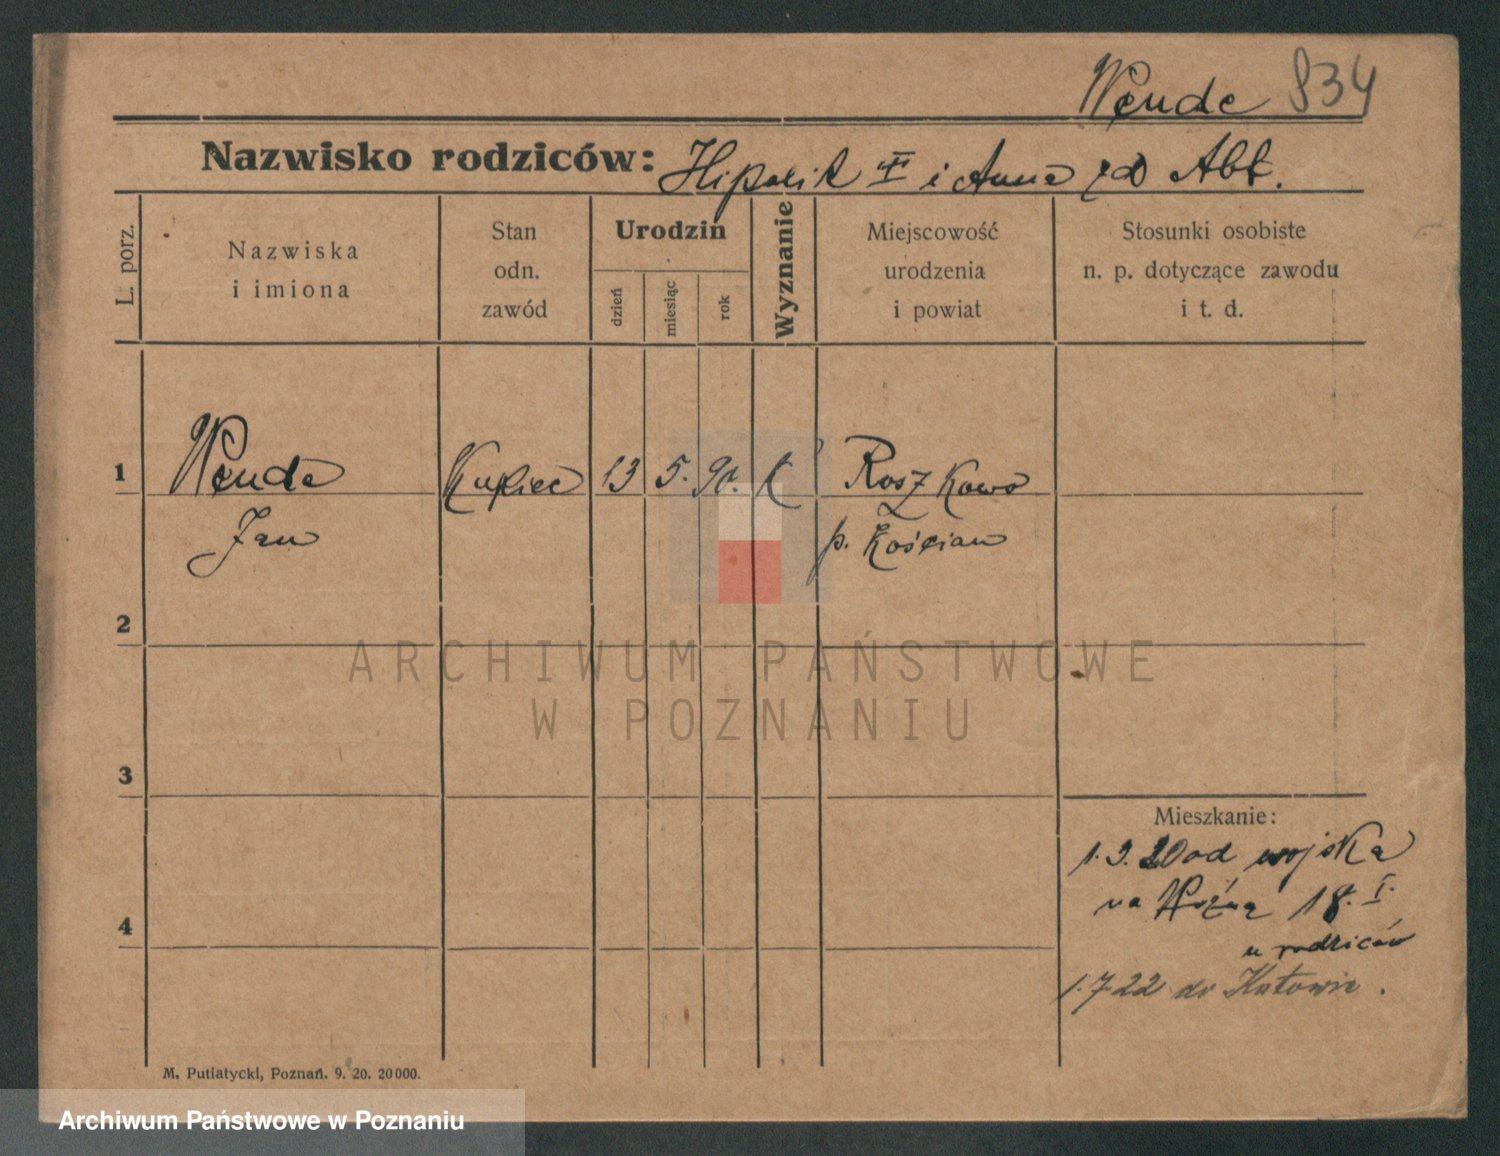 Wende 834
Nazwisko rodziców: Hipolit i Anna zd Abt.
L. porz.
Nazwiska
i imiona
Stan
odn.
zawód
Urodzin
dzień
miesiąc
rok
Wyznanie
Miejscowość
urodzenia
i powiat
Stosunki osobiste
n. p. dotyczące zawodu
i t. d.
1 Wenda Kupiec 13 5. 90. K Roszkowo
Jan p. Kościan
2
ARCHIWUM PAŃSTWOWE
W POZNANIU
3
Mieszkanie:
1.3.20 od wojska
na Woźną 18. I.
4
u rodziców
1.7 22 do Katowic.
M. Putiatycki, Poznań. 9. 20. 20000.
Archiwum Państwowe w Poznaniu